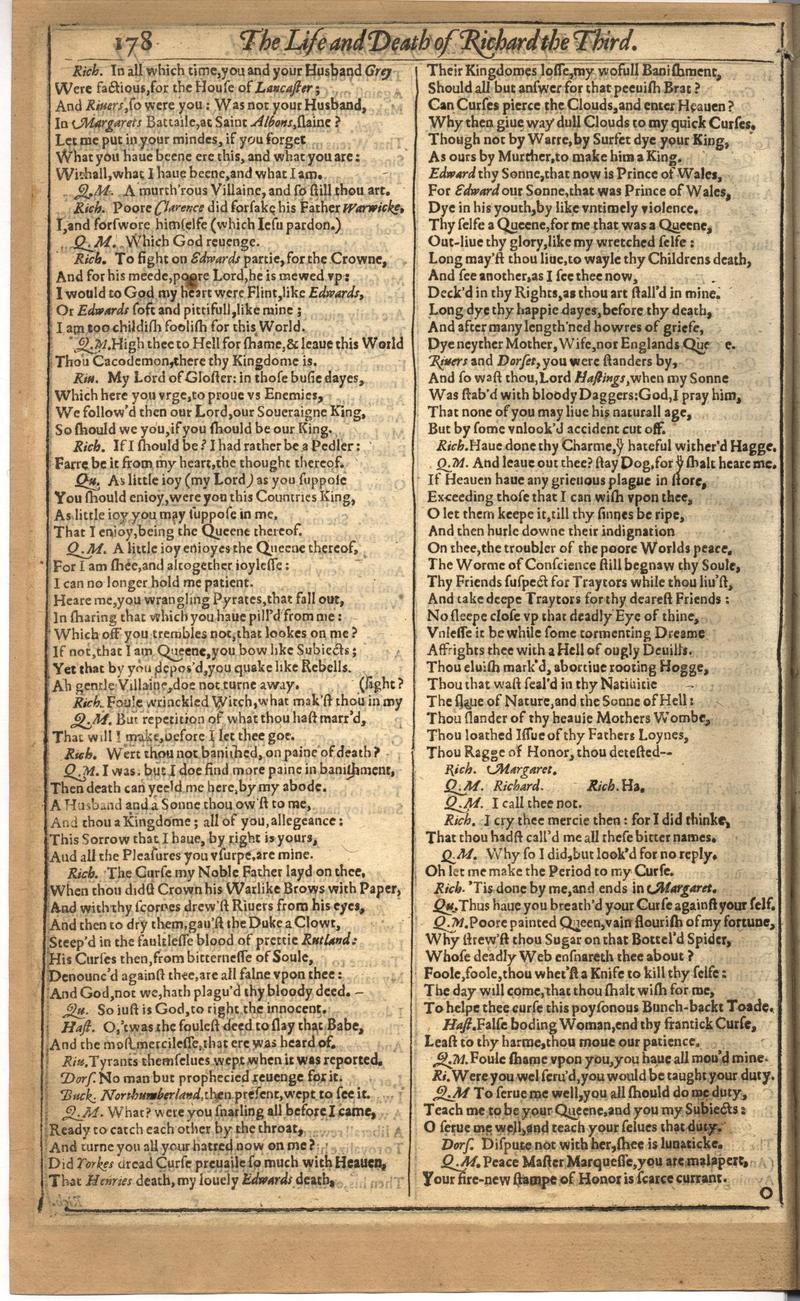 178 The Life and Death of Richard the Third.
Rich. In all which time, you and your Husband Grey
Were factious, for the House of Lancaster;
And Riuers, so were you: Was not your Husband,
In Margarets Battaile, at Saint Albons, slaine?
Let me put in your mindes, if you forget
What you haue beene ere this, and what you are:
Withall, what I haue beene, and what I am.
Q.M. A murth'rous Villaine, and so still thou art.
Rich. Poore Clarence did forsake his Father Warwicke,
I, and forswore himselfe (which Iesu pardon.)
Q.M. Which God reuenge.
Rich. To fight on Edwards partie, for the Crowne,
And for his meede, poore Lord, he is mewed vp:
I would to God my heart were Flint, like Edwards,
Or Edwards soft and pittifull, like mine;
I am too childish foolish for this World.
Q.M. High thee to Hell for shame, & leaue this World
Thou Cacodemon, there thy Kingdome is.
Riu. My Lord of Gloster: in those busie dayes,
Which here you vrge, to proue vs Enemies,
We follow'd then our Lord, our Soueraigne King,
So should we you, if you should be our King.
Rich. If I should be? I had rather be a Pedler:
Farre be it from my heart, the thought thereof.
Qu. As little ioy (my Lord) as you suppose
You should enioy, were you this Countries King,
As little ioy you may suppose in me,
That I enioy, being the Queene thereof.
Q.M. A little ioy enioyes the Queene thereof,
For I am shee, and altogether ioylesse:
I can no longer hold me patient.
Heare me, you wrangling Pyrates, that fall out,
In sharing that which you haue pill'd from me:
Which off you trembles not, that lookes on me?
If not, that I am Queene, you bow like Subiects;
Yet that by you depos'd, you quake like Rebells.
Ah gentle Villaine, doe not turne away. (sight?
Rich. Foule wrinckled Witch, what mak'st thou in my
Q.M. But repetition of what thou hast marr'd,
That will I make, before I let thee goe.
Rich. Wert thou not banished, on paine of death?
Q.M. I was: but I doe find more paine in banishment,
Then death can yeeld me here, by my abode.
A Husband and a Sonne thou ow'st to me,
And thou a Kingdome; all of you, allegeance:
This Sorrow that I haue, by right is yours,
And all the Pleasures you vsurpe, are mine.
Rich. The Curse my Noble Father layd on thee,
When thou didst Crown his Warlike Brows with Paper,
And with thy scornes drew'st Riuers from his eyes,
And then to dry them, gau'st the Duke a Clowt,
Steep'd in the faultlesse blood of prettie Rutland:
His Curses then, from bitternesse of Soule,
Denounc'd against thee, are all falne vpon thee:
And God, not we, hath plagu'd thy bloody deed.
Qu. So iust is God, to right the innocent.
Hast. O, 'twas the foulest deed to slay that Babe,
And the most mercilesse, that ere was heard of.
Riu. Tyrants themselues wept when it was reported.
Dors. No man but prophecied reuenge for it.
Buck. Northumberland, then present, wept to see it.
Q.M. What? were you snarling all before I came,
Ready to catch each other by the throat,
And turne you all your hatred now on me?
Did Yorkes dread Curse preuaile so much with Heauen,
That Henries death, my louely Edwards death,
Their Kingdomes losse, my wofull Banishment,
Should all but answer for that peeuish Brat?
Can Curses pierce the Clouds, and enter Heauen?
Why then giue way dull Clouds to my quick Curses.
Though not by Warre, by Surfet dye your King,
As ours by Murther, to make him a King.
Edward thy Sonne, that now is Prince of Wales,
For Edward our Sonne, that was Prince of Wales,
Dye in his youth, by like vntimely violence.
Thy selfe a Queene, for me that was a Queene,
Out-liue thy glory, like my wretched selfe:
Long may'st thou liue, to wayle thy Childrens death,
And see another, as I see thee now,
Deck'd in thy Rights, as thou art stall'd in mine.
Long dye thy happie dayes, before thy death,
And after many length'ned howres of griefe,
Dye neyther Mother, Wife, nor Englands Que e.
Riuers and Dorset, you were standers by,
And so wast thou, Lord Hastings, when my Sonne
Was stab'd with bloody Daggers: God, I pray him,
That none of you may liue his naturall age,
But by some vnlook'd accident cut off.
Rich. Haue done thy Charme, yͧ hateful wither'd Hagge.
Q.M. And leaue out thee? stay Dog, for yͧ shalt heare me.
If Heauen haue any grieuous plague in store,
Exceeding those that I can wish vpon thee,
O let them keepe it, till thy sinnes be ripe,
And then hurle downe their indignation
On thee, the troubler of the poore Worlds peace.
The Worme of Conscience still begnaw thy Soule,
Thy Friends suspect for Traytors while thou liu'st,
And take deepe Traytors for thy dearest Friends:
No sleepe close vp that deadly Eye of thine,
Vnlesse it be while some tormenting Dreame
Affrights thee with a Hell of ougly Deuills.
Thou eluish mark'd, abortiue rooting Hogge,
Thou that wast seal'd in thy Natiuitie
The slaue of Nature, and the Sonne of Hell:
Thou slander of thy heauie Mothers Wombe,
Thou loathed Issue of thy Fathers Loynes,
Thou Ragge of Honor, thou detested--
Rich. Margaret.
Q.M. Richard. Rich. Ha.
Q.M. I call thee not.
Rich. I cry thee mercie then: for I did thinke,
That thou hadst call'd me all these bitter names.
Q.M. Why so I did, but look'd for no reply.
Oh let me make the Period to my Curse.
Rich. 'Tis done by me, and ends in Margaret.
Qu. Thus haue you breath'd your Curse against your self.
Q.M. Poore painted Queen, vain flourish of my fortune,
Why strew'st thou Sugar on that Bottel'd Spider,
Whose deadly Web ensnareth thee about?
Foole, foole, thou whet'st a Knife to kill thy selfe:
The day will come, that thou shalt wish for me,
To helpe thee curse this poysonous Bunch-backt Toade.
Hast. False boding Woman, end thy frantick Curse,
Least to thy harme, thou moue our patience.
Q.M. Foule shame vpon you, you haue all mou'd mine.
Ri. Were you wel seru'd, you would be taught your duty.
Q.M To serue me well, you all should do me duty,
Teach me to be your Queene, and you my Subiects:
O serue me well, and teach your selues that duty.
Dors. Dispute not with her, shee is lunaticke.
Q.M. Peace Master Marquesse, you are malapert,
Your fire-new stampe of Honor is scarce currant.
O